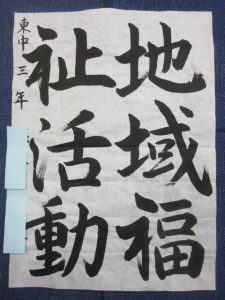 地域福
祉活動
東中 三年